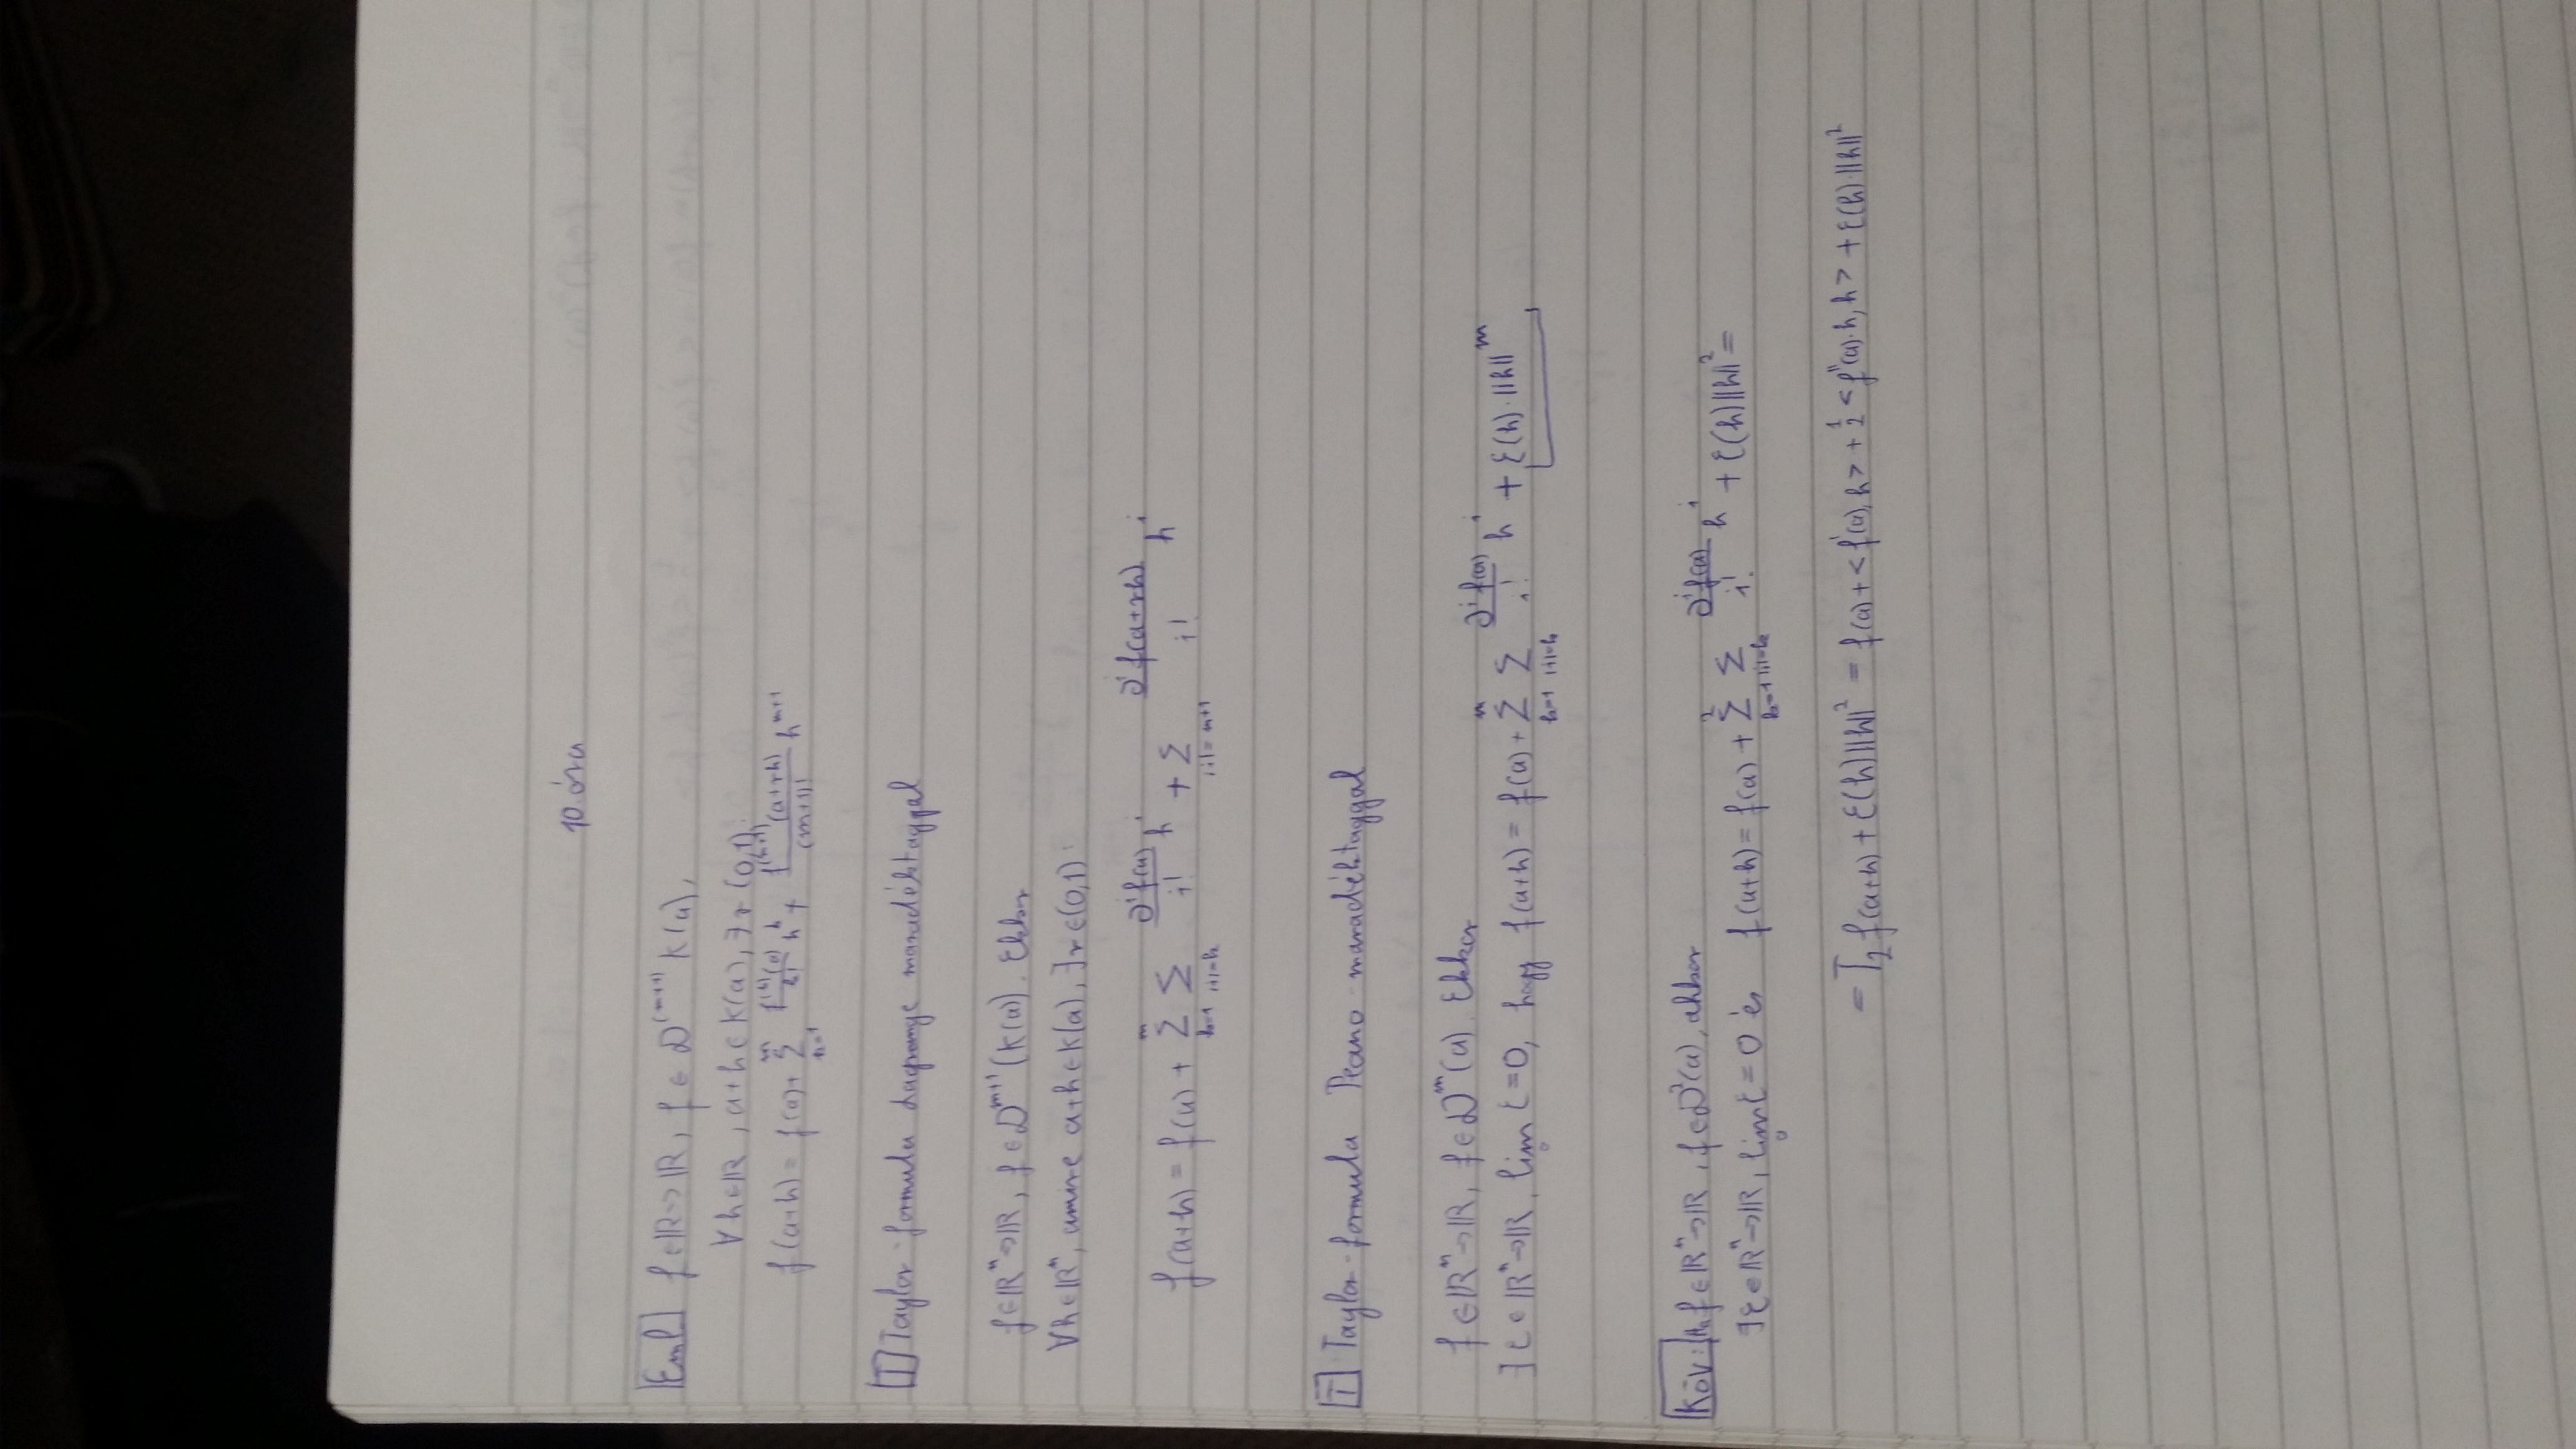 10. óra
Eml f∈ℝ→ℝ, f∈D⁽ᵐ⁺¹⁾ K(a),
∀h∈ℝ, a+h∈K(a), ∃r(0,1):
f(a+h) = f(a) + Σ_{k=1}^{m} f⁽ᵏ⁾(a)/k! hᵏ + f⁽ᵐ⁺¹⁾(a+rh)/(m+1)! hᵐ⁺¹
T Taylor-formula Lagrange maradéktaggal
f∈ℝⁿ→ℝ, f∈Dᵐ⁺¹(K(a)). Ekkor
∀h∈ℝⁿ, amire a+h∈K(a), ∃r∈(0,1):
f(a+h) = f(a) + Σ_{k=1}^{m} Σ_{|i|=k} ∂ⁱf(a)/i! hⁱ + Σ_{|i|=m+1} ∂ⁱf(a+rh)/i! hⁱ
T Taylor-formula Peano maradéktaggal
f∈ℝⁿ→ℝ, f∈Dᵐ(a). Ekkor
∃ε∈ℝⁿ→ℝ, lim_0 ε=0, hogy f(a+h) = f(a) + Σ_{k=1}^{m} Σ_{|i|=k} ∂ⁱf(a)/i! hⁱ + ε(h)·||h||ᵐ
Köv: Ha f∈ℝⁿ→ℝ, f∈D²(a), akkor
∃ε∈ℝⁿ→ℝ, lim_0 ε=0 és f(a+h) = f(a) + Σ_{k=1}^{2} Σ_{|i|=k} ∂ⁱf(a)/i! hⁱ + ε(h)||h||² =
= T₂f(a+h) + ε(h)||h||² = f(a) + <f'(a), h> + 1/2 <f''(a)·h, h> + ε(h)·||h||²